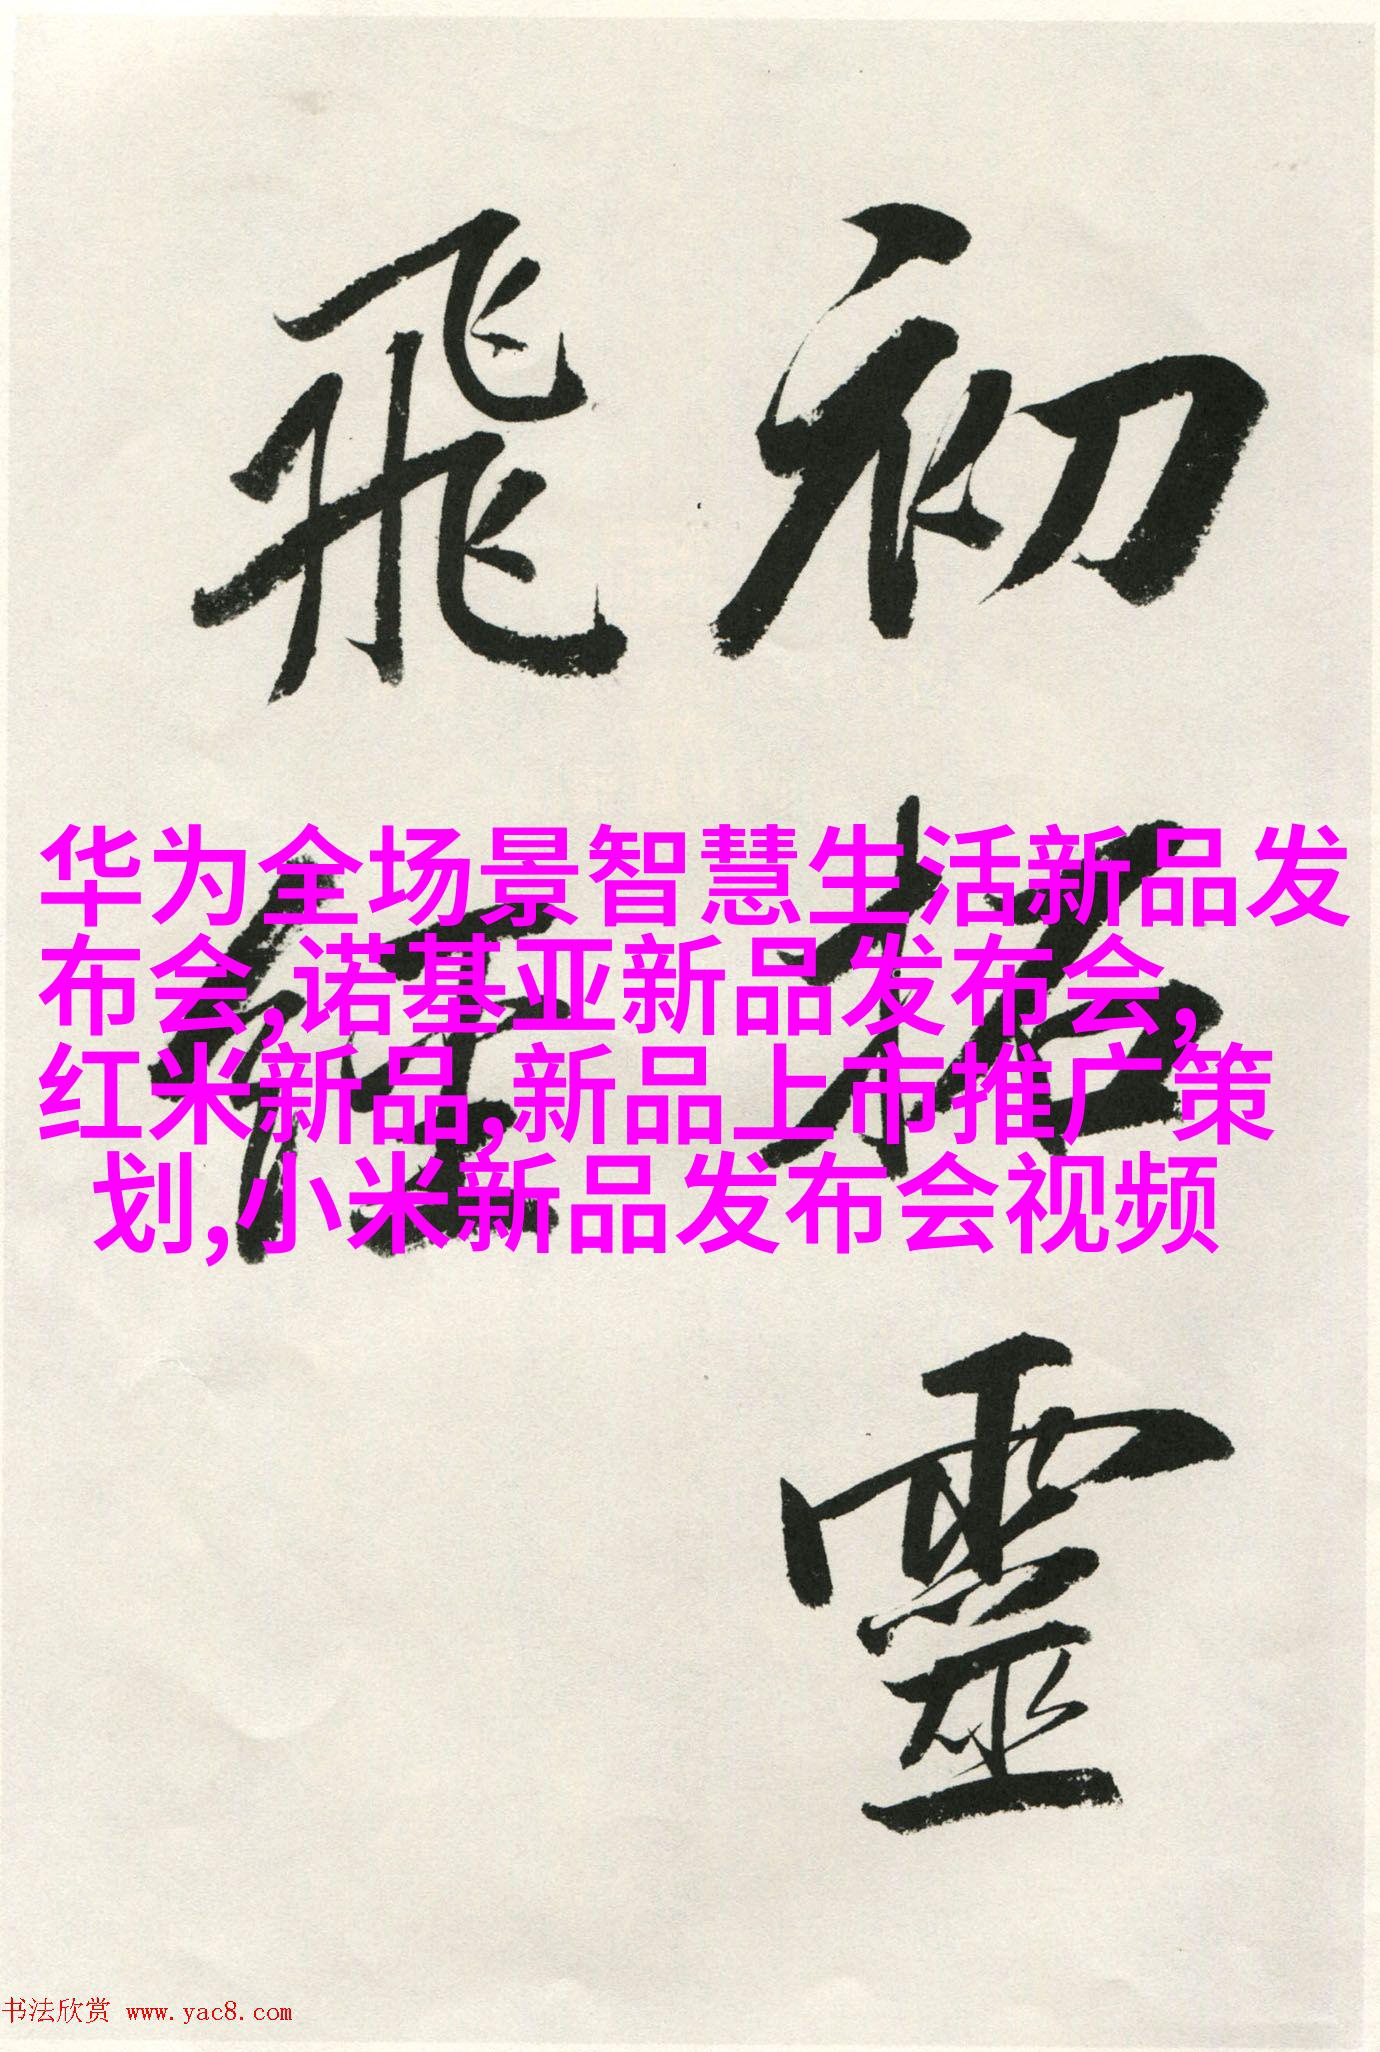 初拓靈
飛經
华为全场景智慧生活新品发
布会,诺基亚新品发布会,
红米新品,新品上市推广策
划,小米新品发布会视频
书法欣赏 www.yac8.com